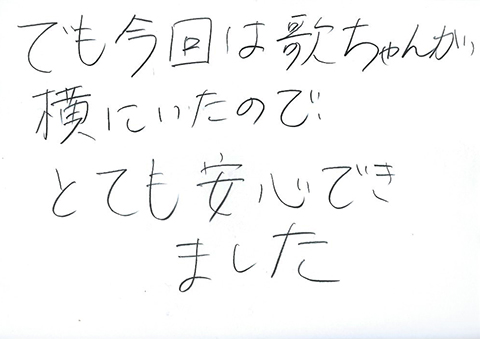 でも今回は歌ちゃんが
横にいたので
とても安心でき
ました